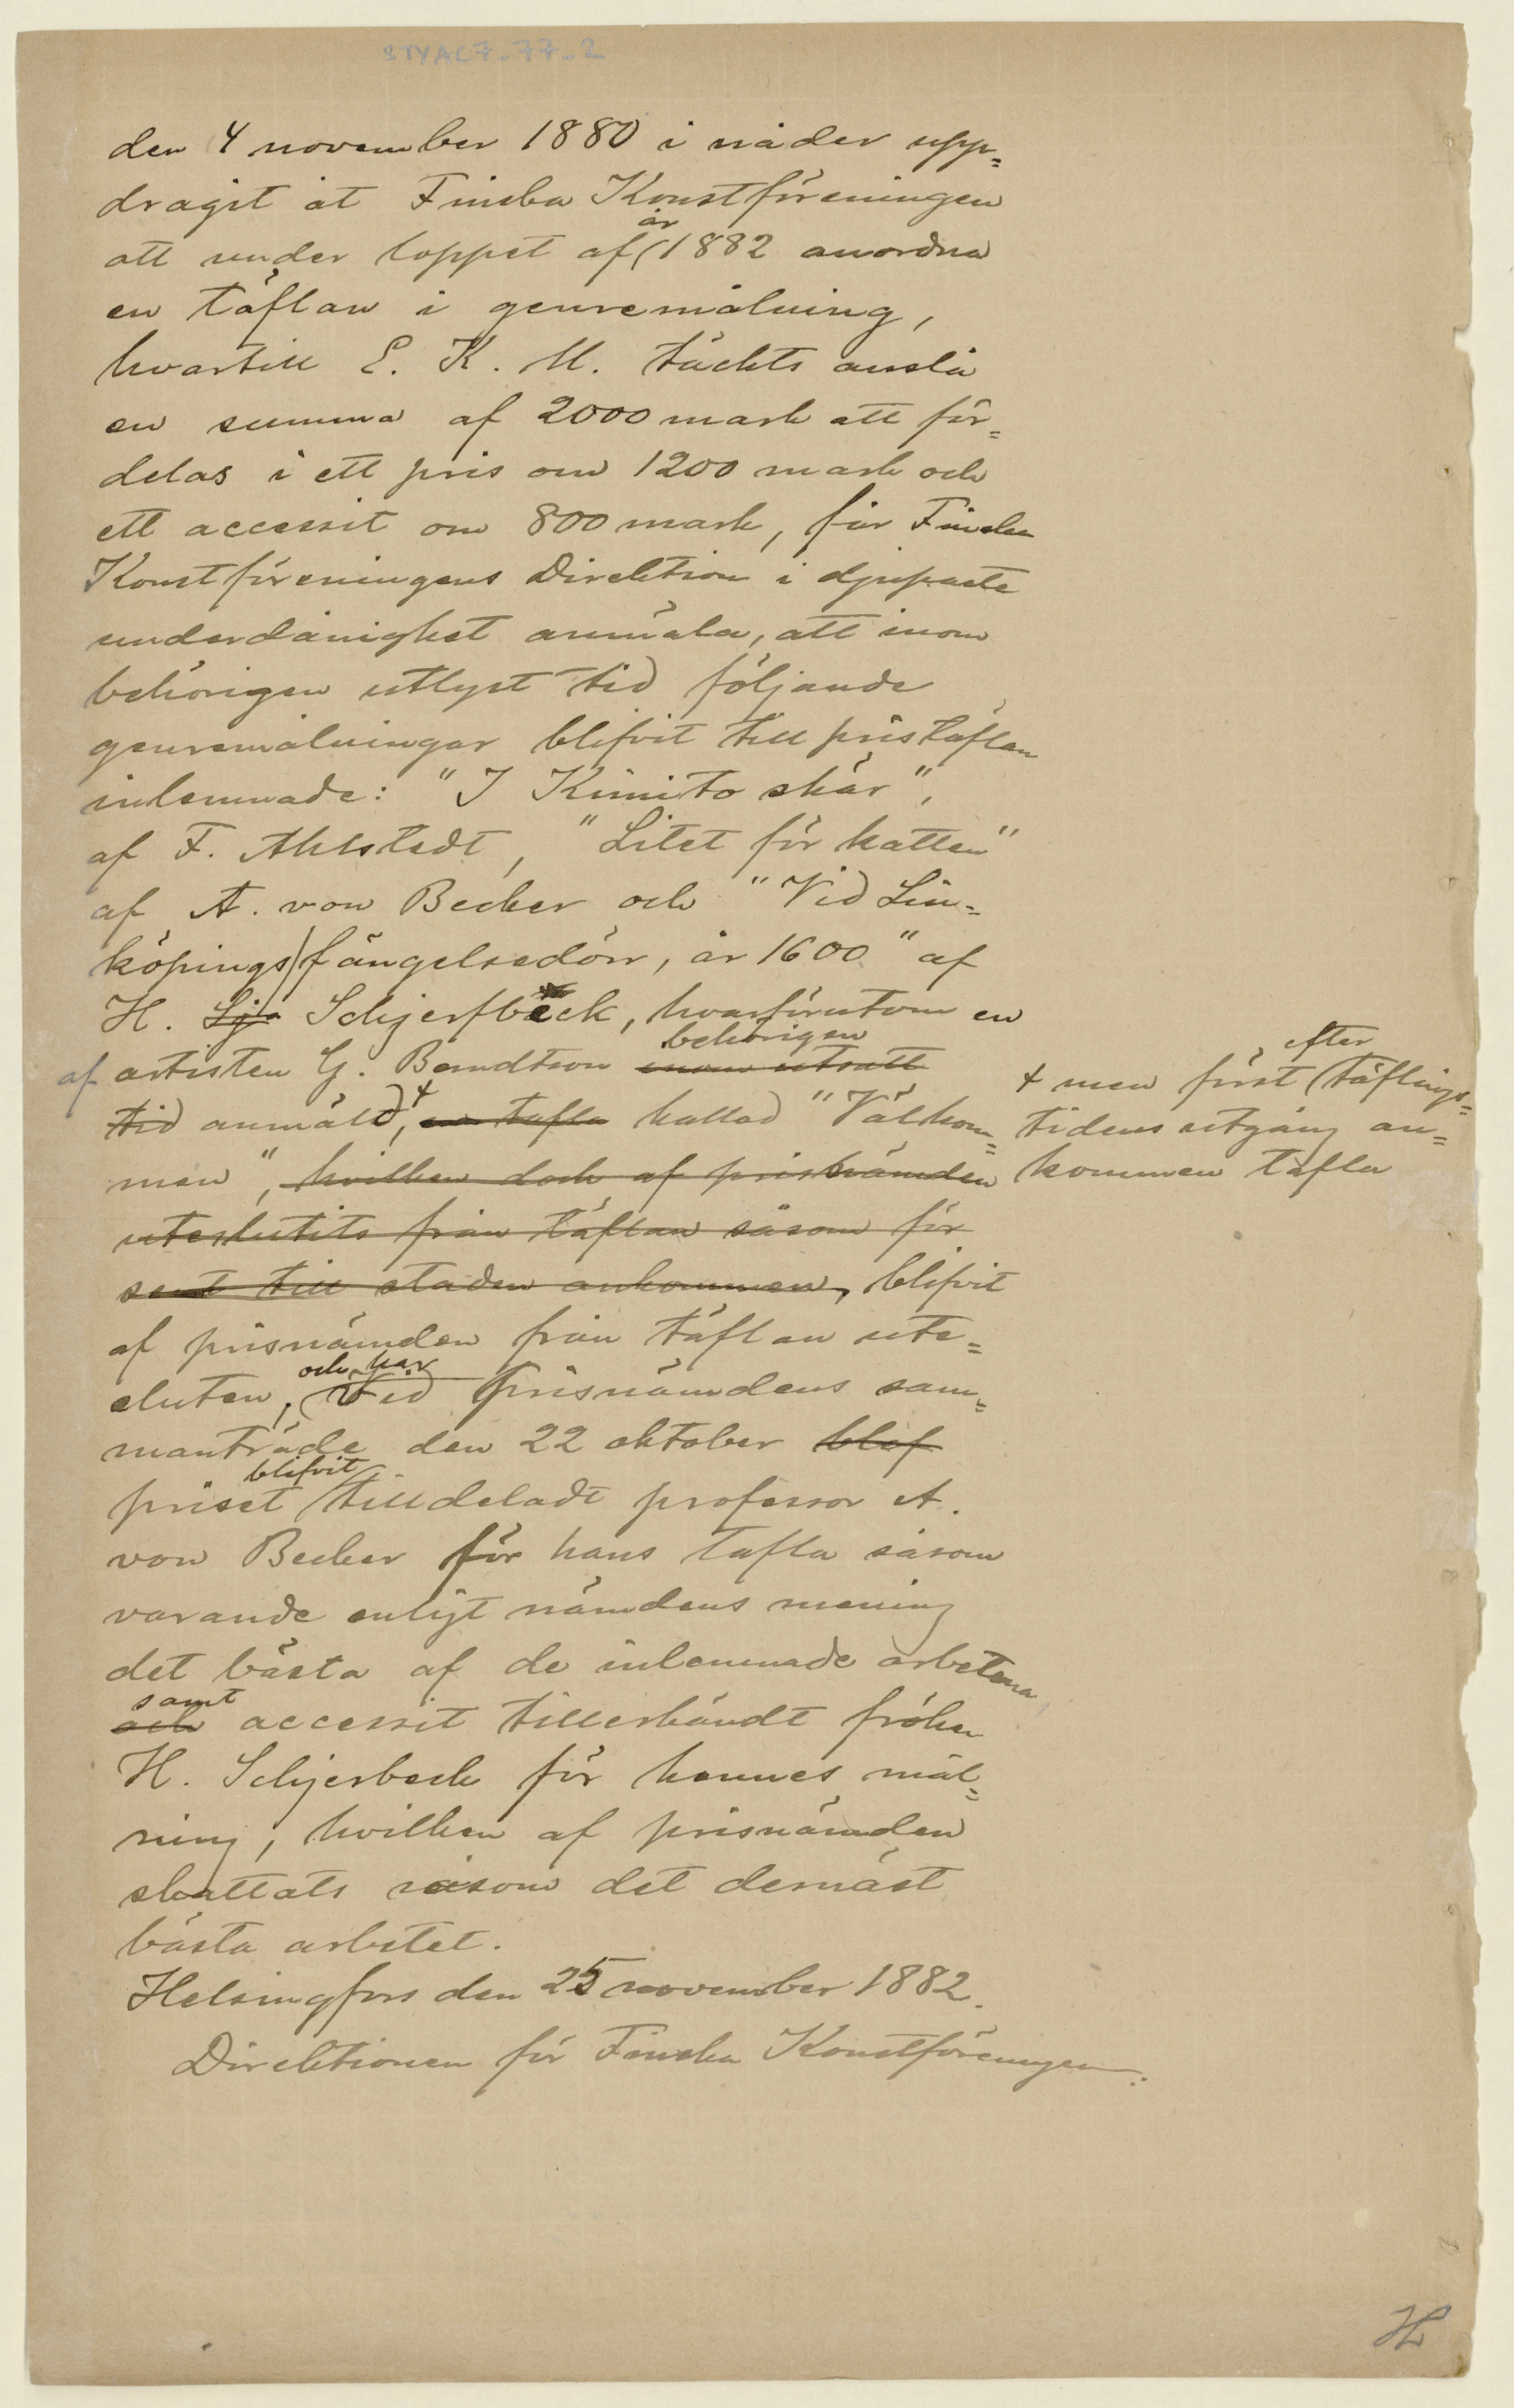 STYAL7-77-2
den 4 november 1880 i nåder upp=
dragit åt Finska Konstföreningen
att under loppet af år 1882 anordna
en täflan i genremålning,
hvartill E. K. M. täckts anslå
en summa af 2000 mark att för=
delas i ett pris om 1200 mark och
ett accessit om 800 mark, får Finska
Konstföreningens Direktion i djupaste
underdånighet anmäla, att inom
behörigen utlyst tid följande
genremålningar blifvit till pristäflan
inlemnade: "I Kimito skär",
af F. Ahlstedt, "Litet för katten"
af A. von Becker och "Vid Lin=
köpings fängelsedörr, år 1600" af
H. Sj Schjerfbeck, hvarförutom en
behörigen
af artisten G. Berndtson inom utsatt
tid anmäld, + en tafla kallad "Välkom=
men", hvilken dock af prisnämden
uteslutits från täflan såsom för
sent till staden ankommen, blifvit
af prisnämden från täflan ute=
sluten, och har Vid Prisnämdens sam=
manträde den 22 oktober blef
priset blifvit tilldeladt professor A.
von Becker för hans tafla såsom
varande enligt nämdens mening
det bästa af de inlemnade arbetena
samt
och accessit tillerkändt fröken
H. Schjerbeck för hennes mål=
ning, hvilken af prisnämden
skattats såsom det dernäst
bästa arbetet.
Helsingfors den 25 november 1882.
Direktionen för Finska Konstföreningen.
+ men först efter täflings=
tidens utgång an=
kommen tafla